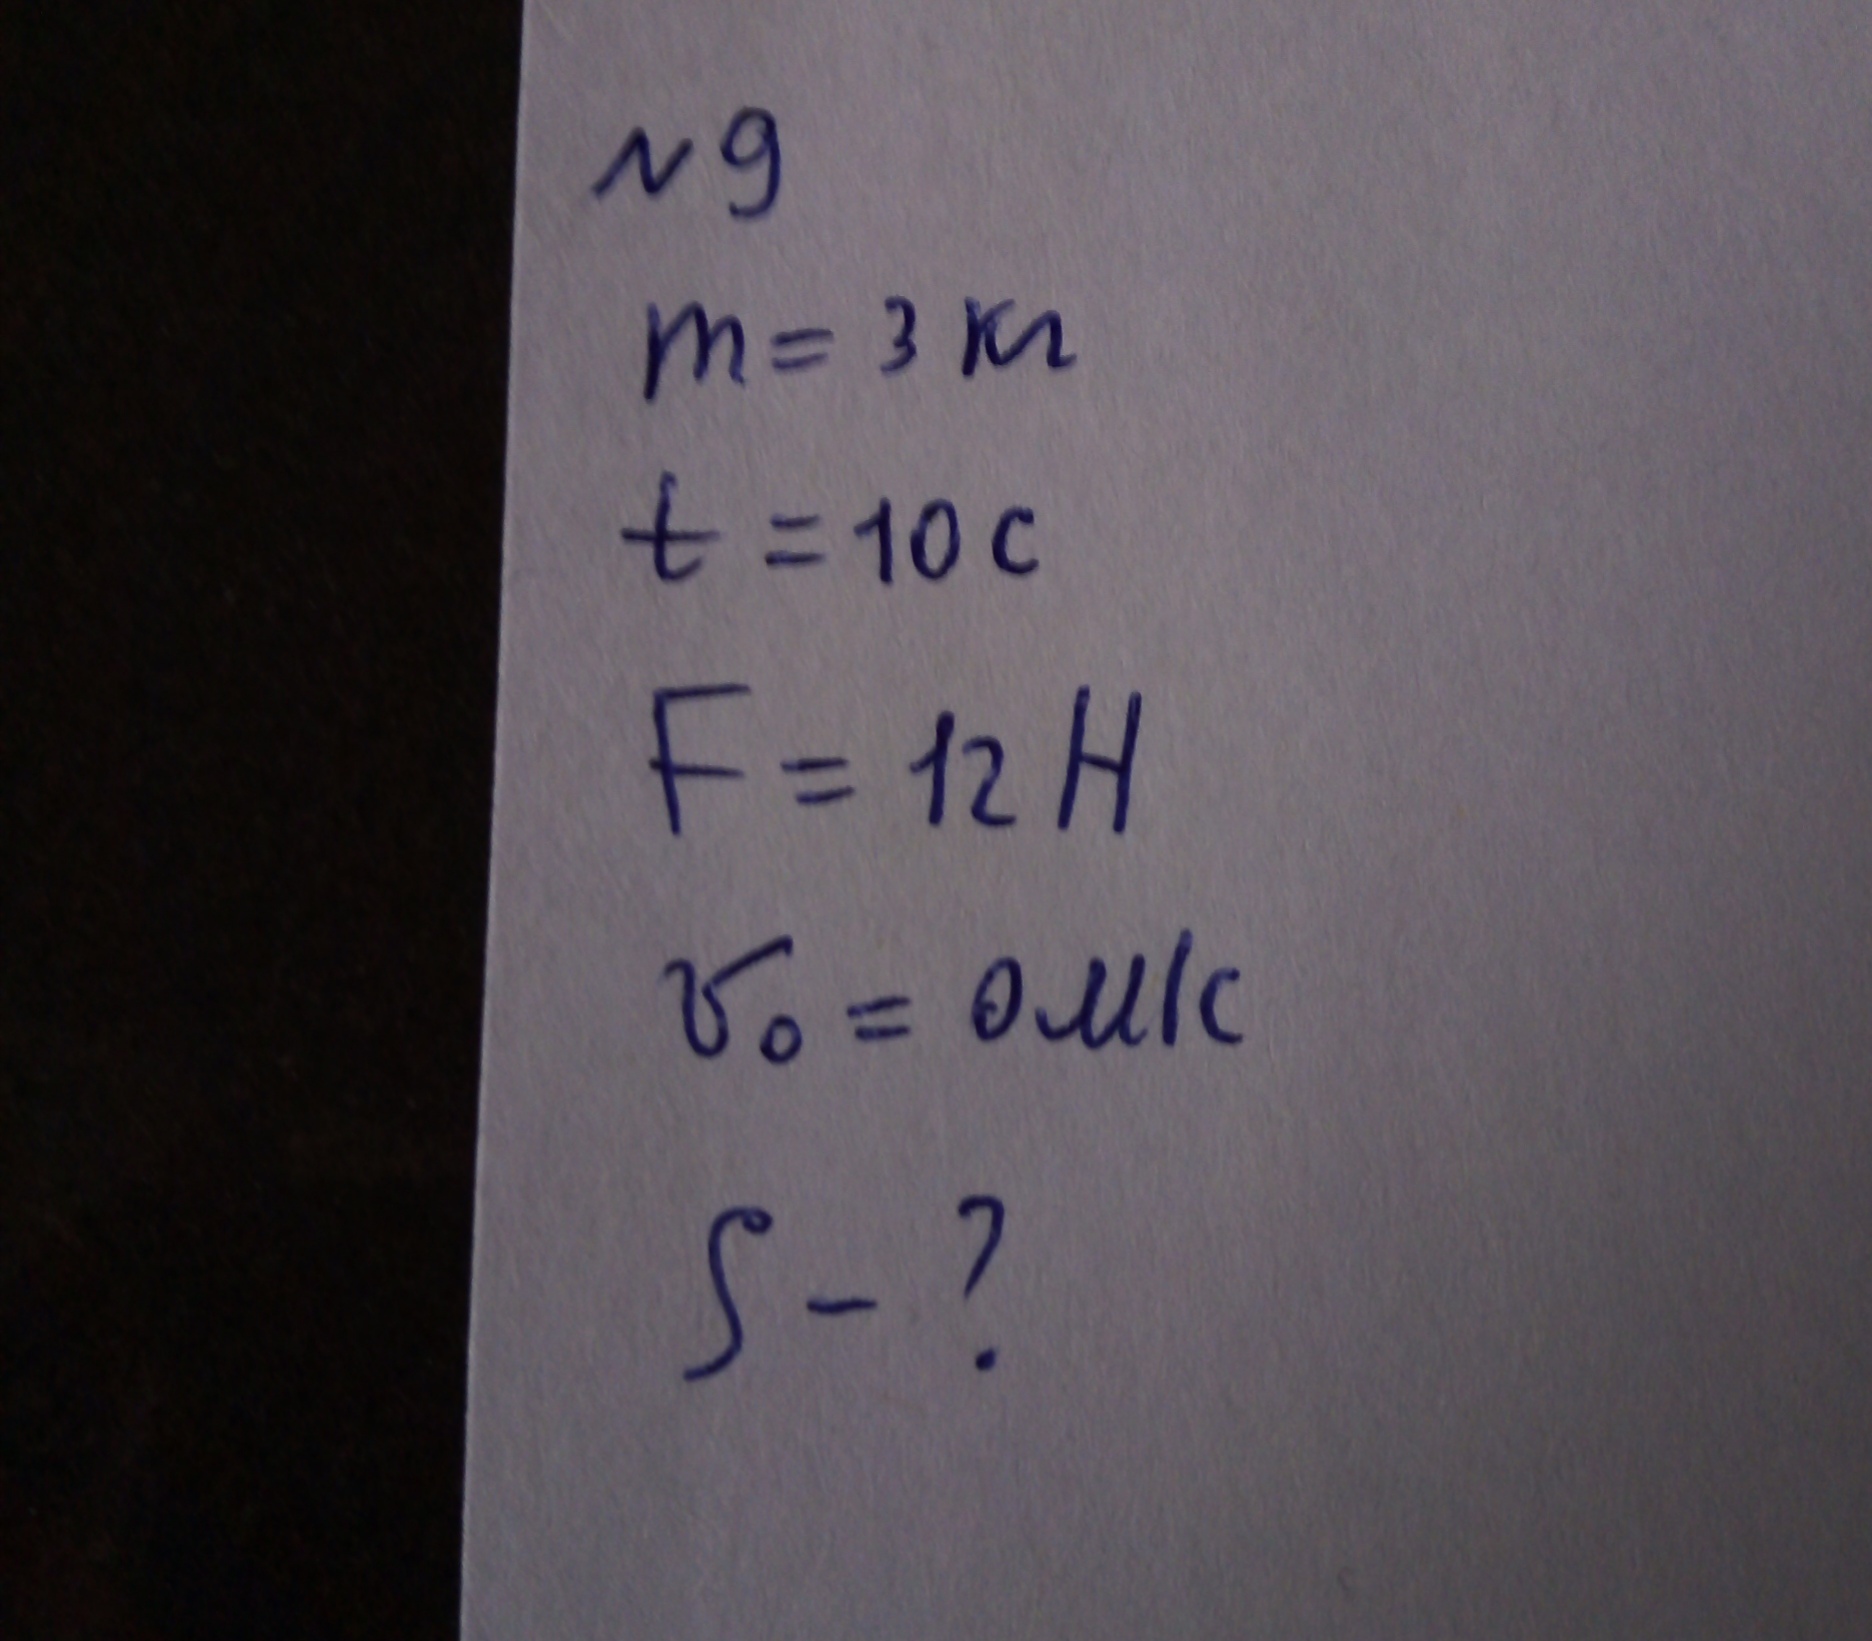 № 9
m = 3 кг
t = 10 с
F = 12 Н
v₀ = 0 м/с
S - ?